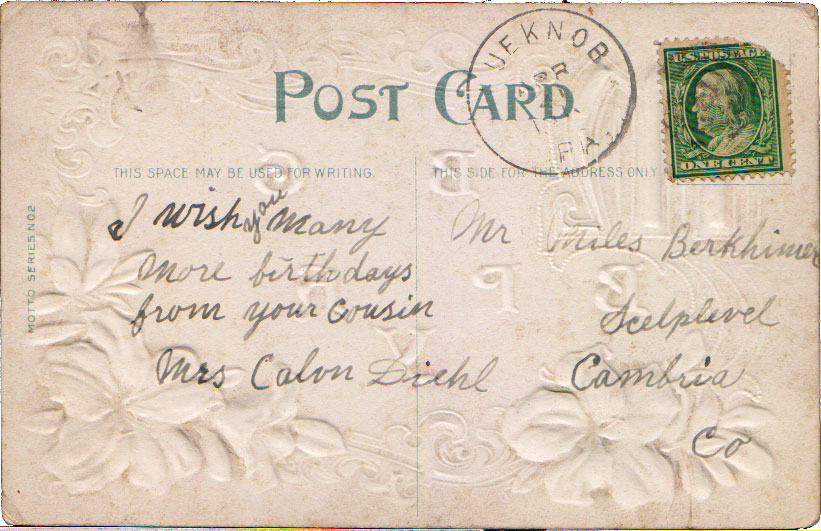 POST CARD
UEKNOB
APR
PA.
U.S. POSTAGE
ONE CENT
THIS SPACE MAY BE USED FOR WRITING.
THIS SIDE FOR THE ADDRESS ONLY
MOTTO SERIES NO 2
I wish you many
more birthdays
from your Cousin
Mrs Calvn Diehl
Mr Miles Berkhimer
Scelplevel
Cambria
Co